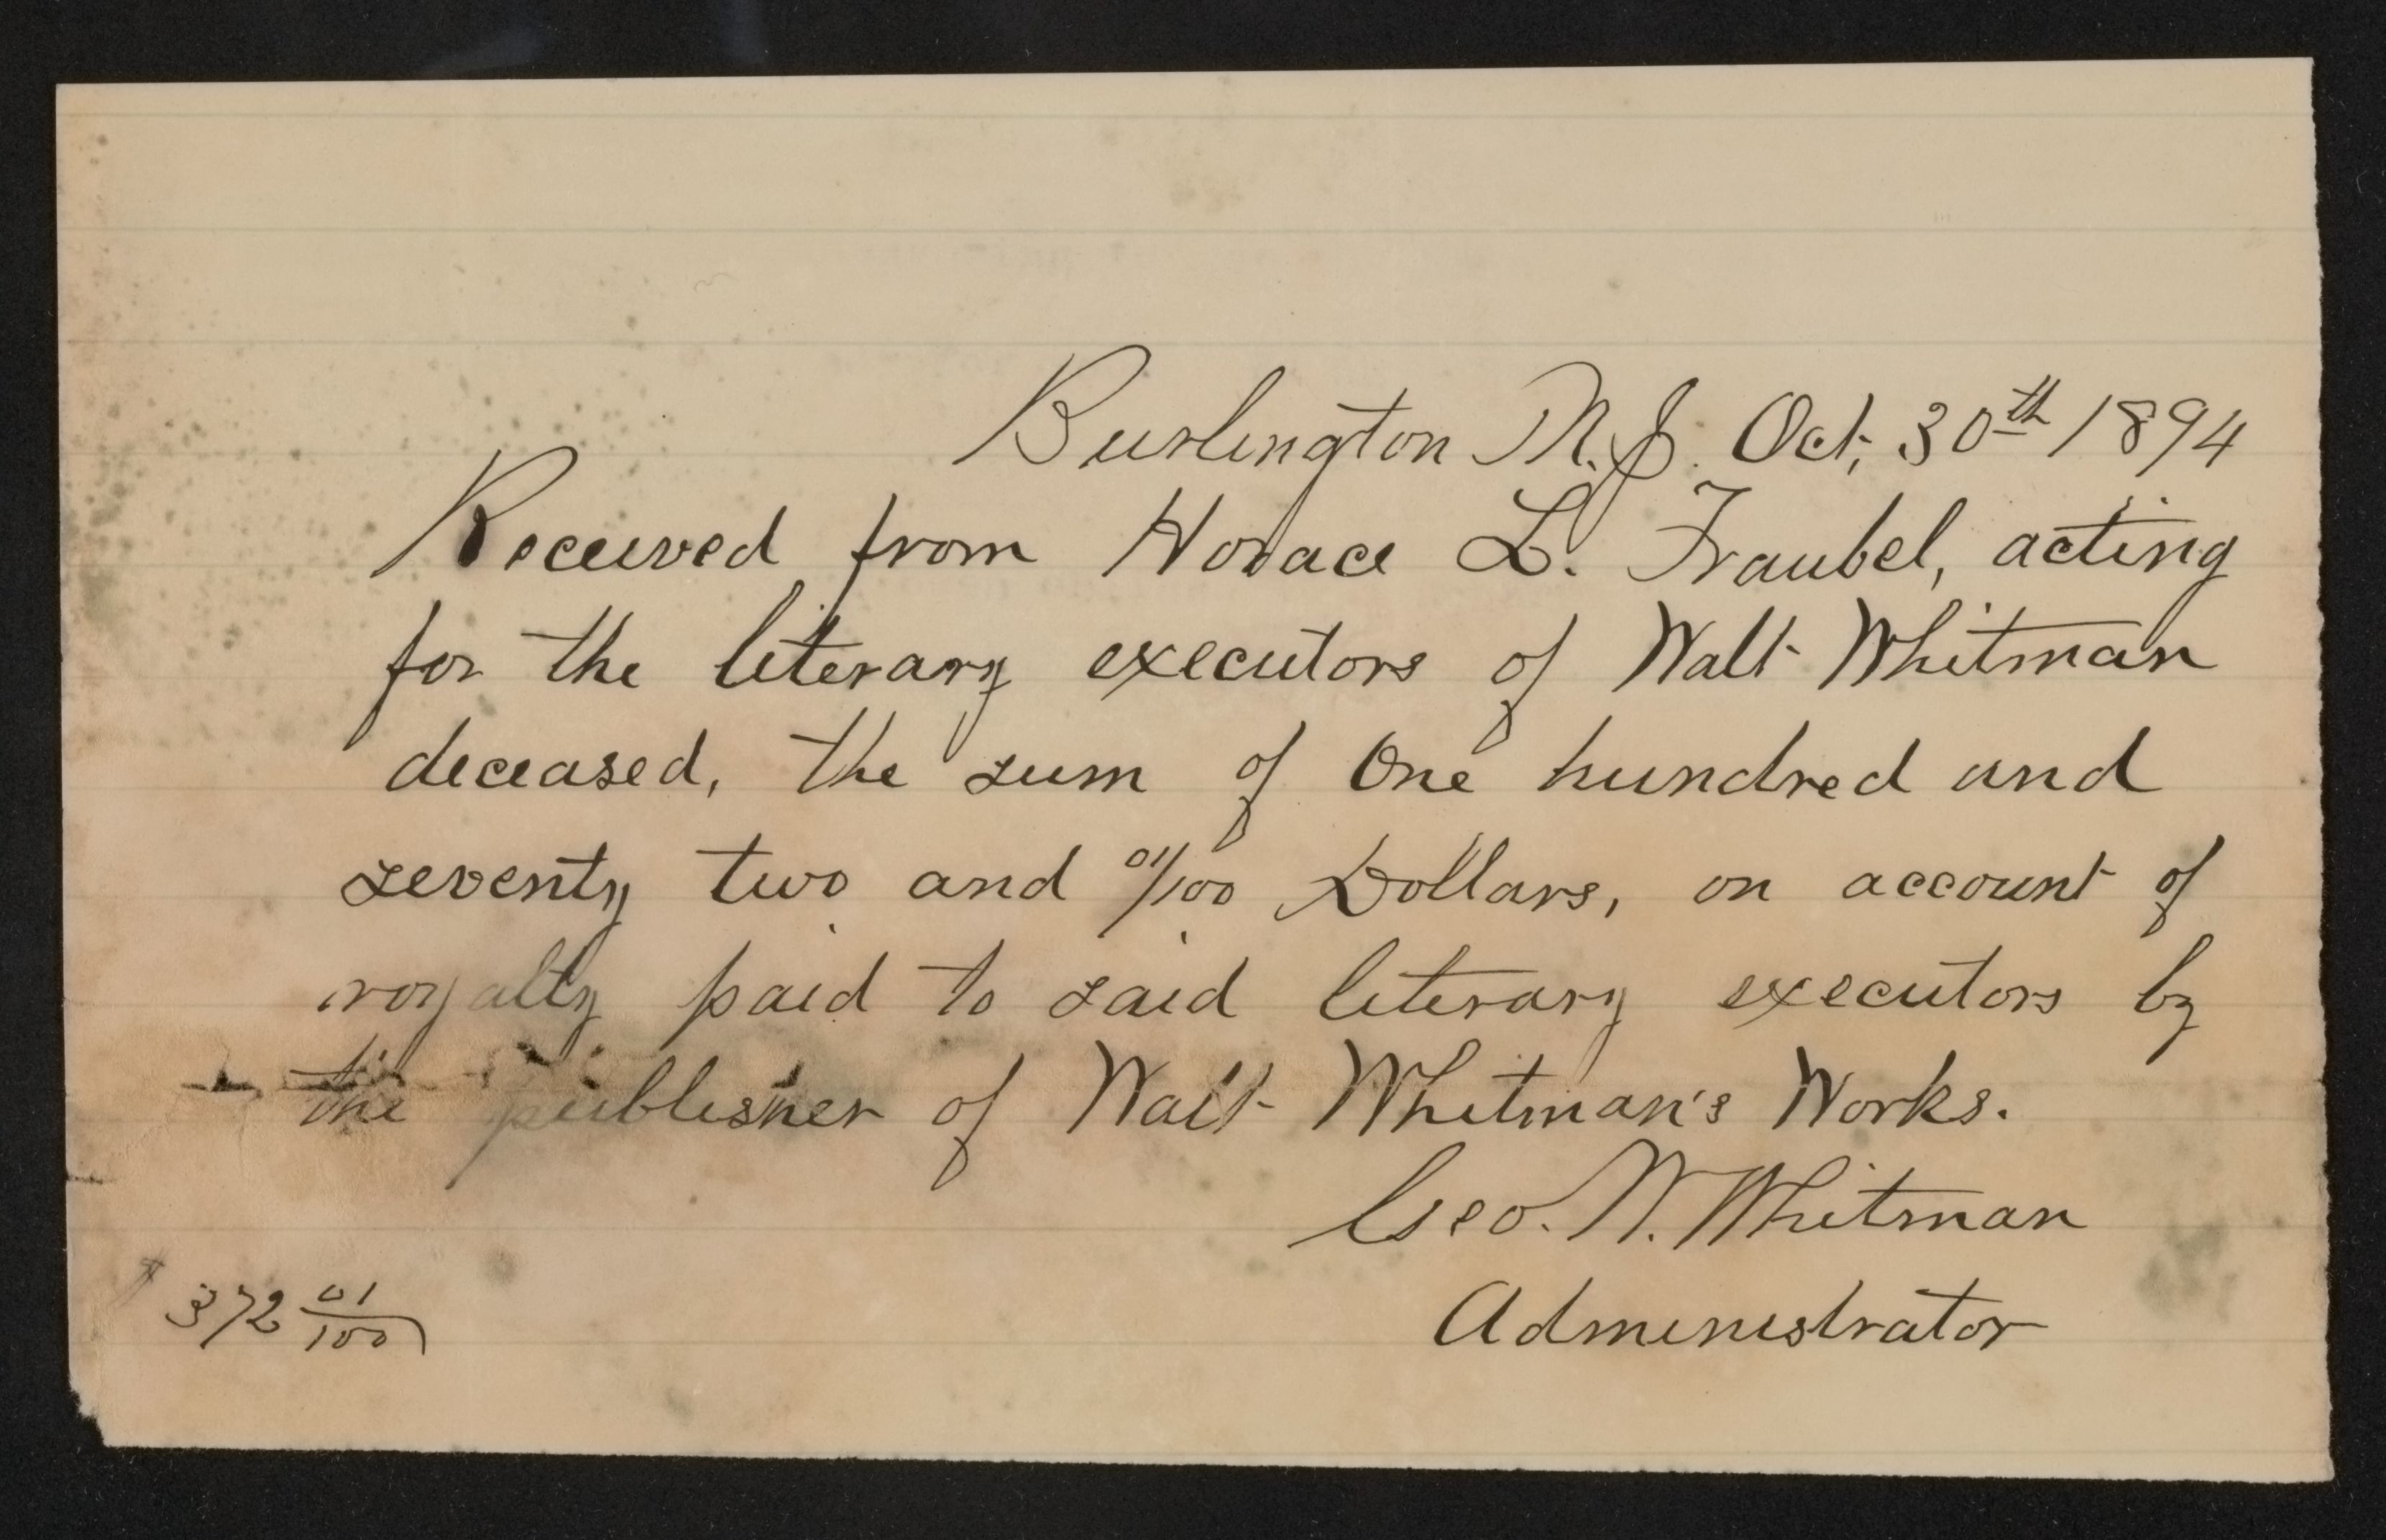 Burlington N.J. Oct, 30th 1894
Received from Horace L. Traubel, acting
for the literary executors of Walt Whitman
deceased, the sum of One hundred and
seventy two and 01/100 Dollars, on account of
royalty paid to said literary executors by
the publisher of Walt Whitman's Works.
Geo. W. Whitman
Administrator
72 01/100